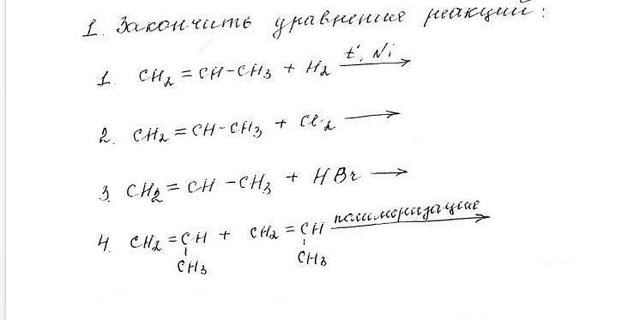 I. Закончить уравнение реакций:
1. CH₂ = CH-CH₃ + H₂ t°, Ni →
2. CH₂ = CH-CH₃ + Cl₂ →
3. CH₂ = CH -CH₃ + HBr →
4. CH₂ = CH + CH₂ = CH полимеризация →
CH₃ CH₃